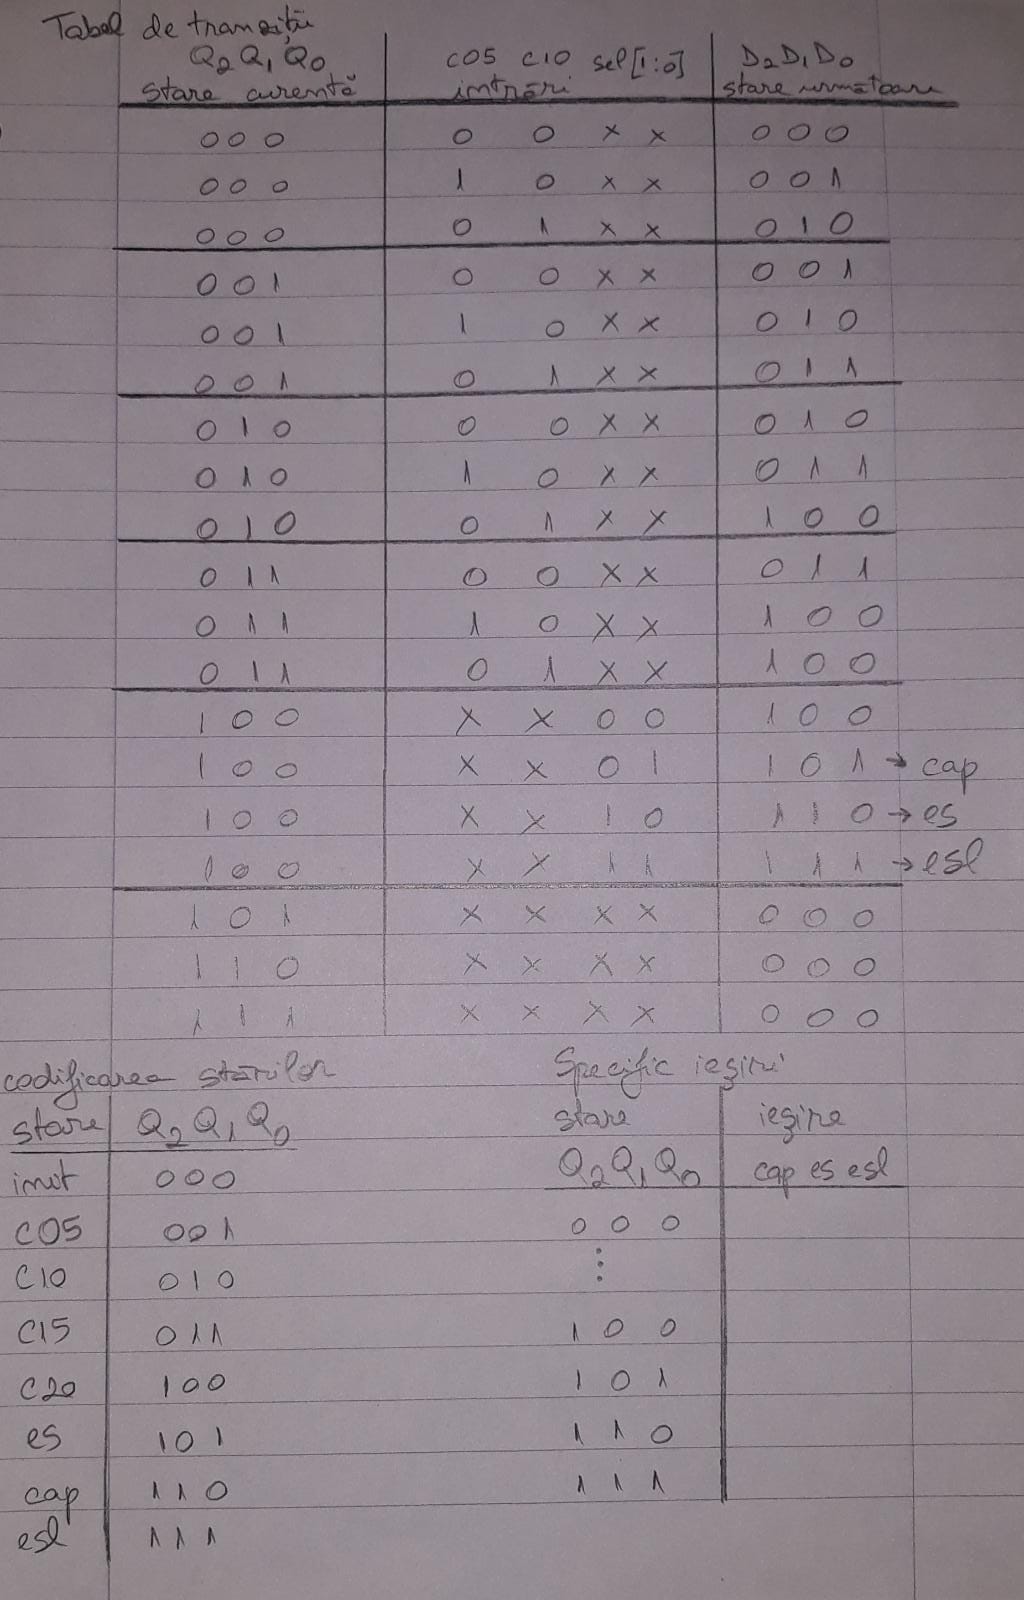 Tabel de tranziții
Q2 Q1 Q0 C05 C10 sel[1:0] D2D1D0
stare curentă intrări stare următoare
0 0 0 0 0 x x 0 0 0
0 0 0 1 0 x x 0 0 1
0 0 0 0 1 x x 0 1 0
0 0 1 0 0 x x 0 0 1
0 0 1 1 0 x x 0 1 0
0 0 1 0 1 x x 0 1 1
0 1 0 0 0 x x 0 1 0
0 1 0 1 0 x x 0 1 1
0 1 0 0 1 x x 1 0 0
0 1 1 0 0 x x 0 1 1
0 1 1 1 0 x x 1 0 0
0 1 1 0 1 x x 1 0 0
1 0 0 x x 0 0 1 0 0
1 0 0 x x 0 1 1 0 1 → cap
1 0 0 x x 1 0 1 1 0 → es
1 0 0 x x 1 1 1 1 1 → esl
1 0 1 x x x x 0 0 0
1 1 0 x x x x 0 0 0
1 1 1 x x x x 0 0 0
codificarea stărilor
stare Q2 Q1 Q0
init 000
C05 001
C10 010
C15 011
C20 100
es 101
cap 110
esl 111
Specific ieșiri
stare ieșire
Q2Q1Q0 cap es esl
0 0 0
⋮
1 0 0
1 0 1
1 1 0
1 1 1